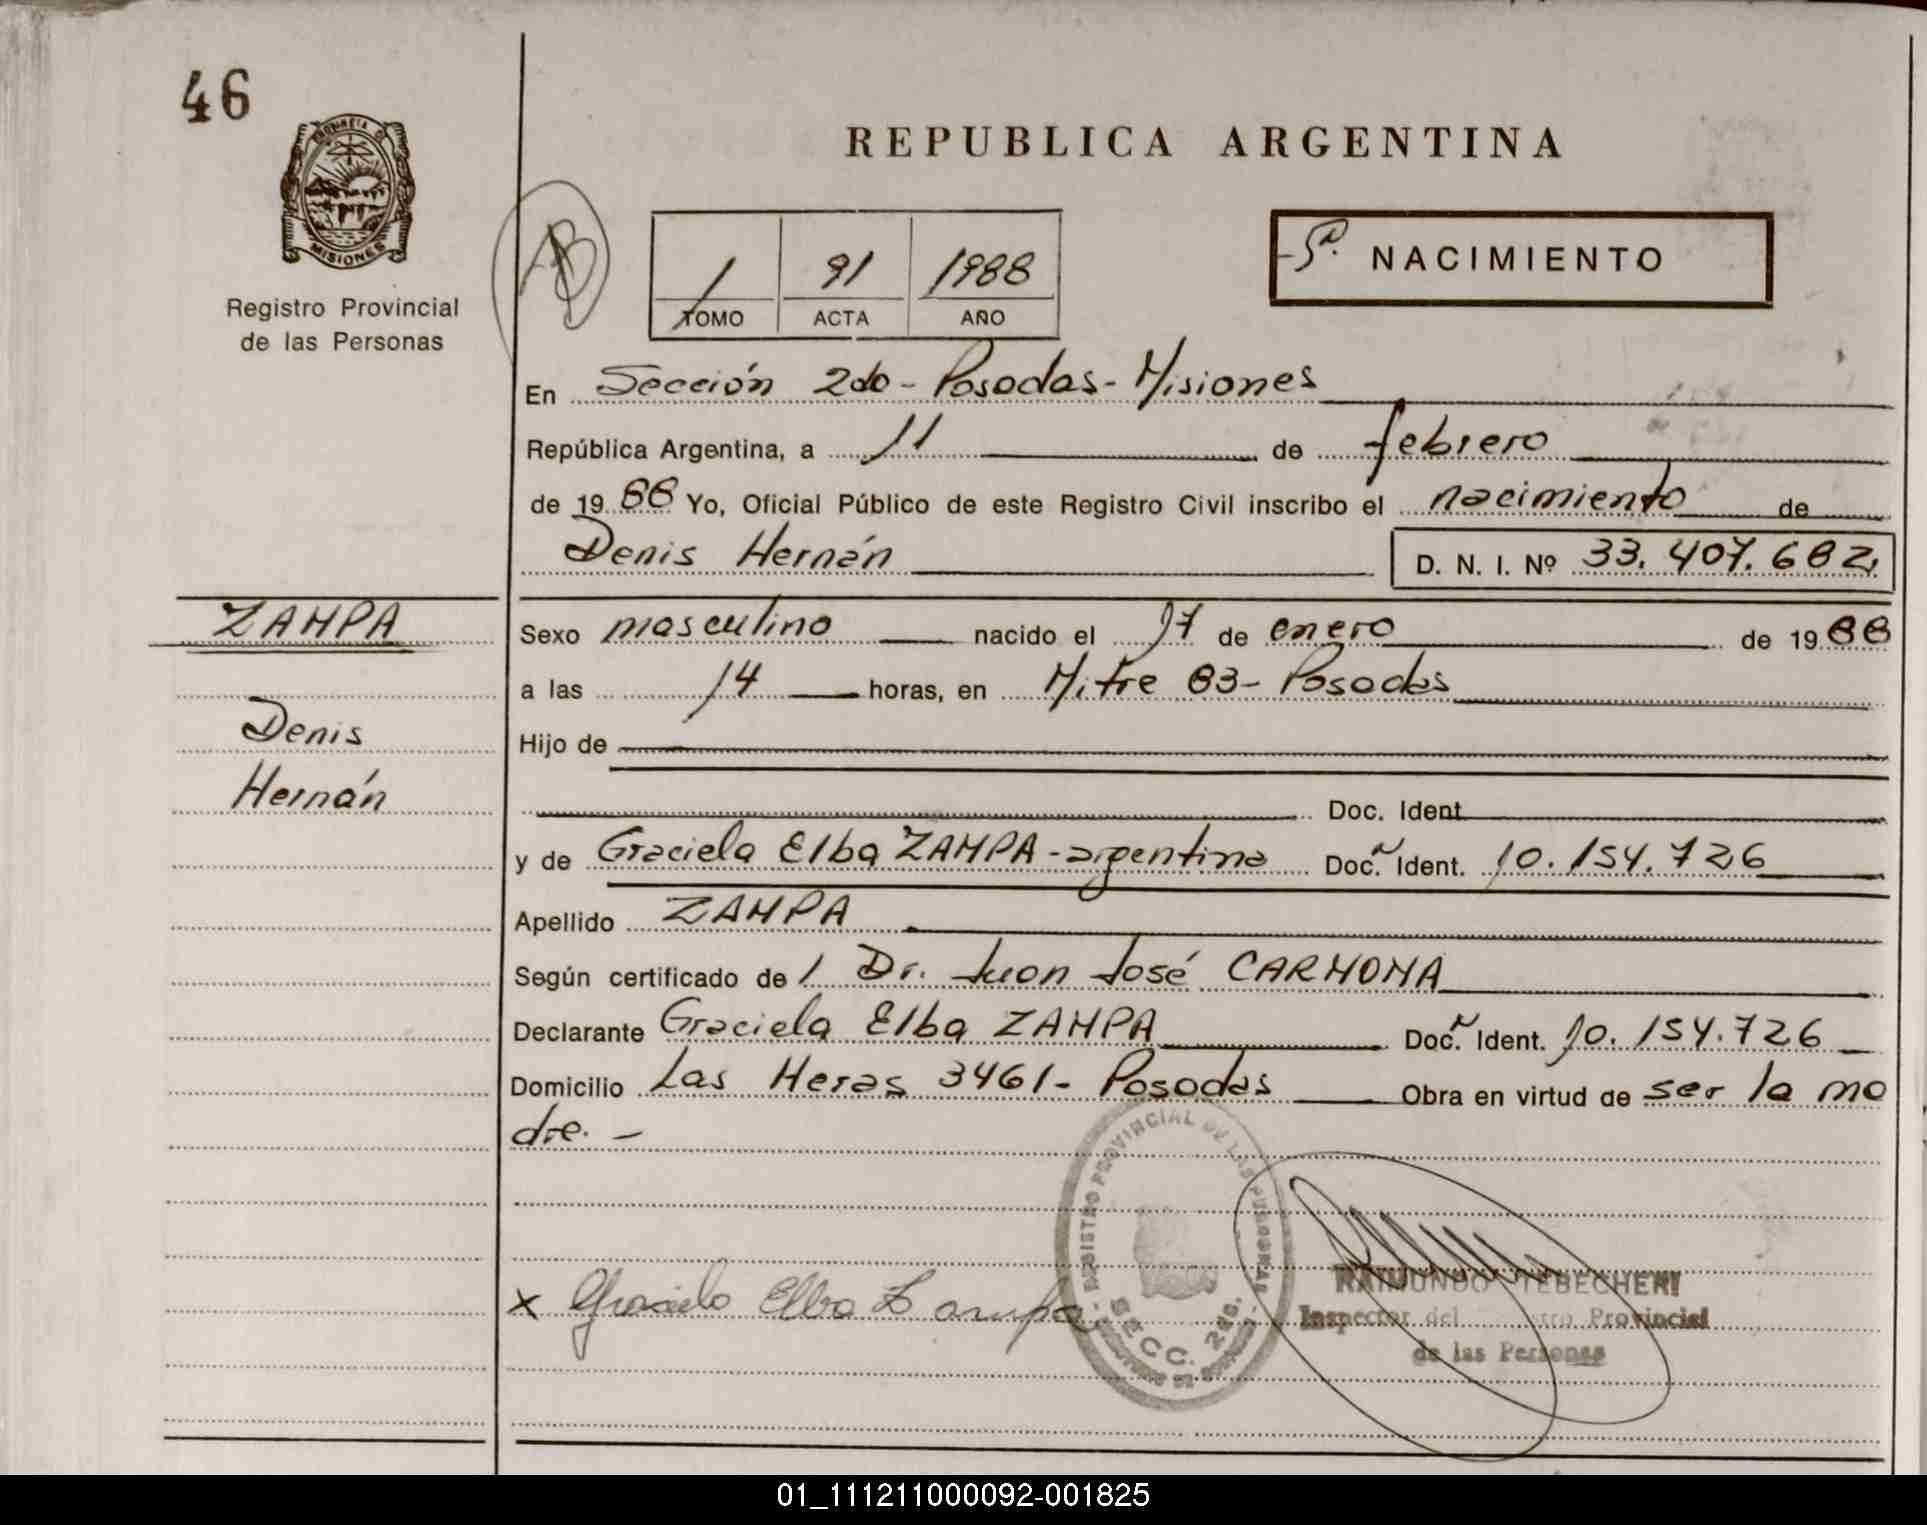 46
PROVINCIA DE
MISIONES
Registro Provincial
de las Personas
REPUBLICA ARGENTINA
AB
1 91 1988
TOMO ACTA AÑO
NACIMIENTO
En Sección 2da - Posadas - Misiones
República Argentina, a 11 de febrero
de 19 88 Yo, Oficial Público de este Registro Civil inscribo el nacimiento de
Denis Hernán D. N. I. Nº 33.407.682
ZAMPA
Denis
Hernán
Sexo masculino nacido el 17 de enero de 19 88
a las 14 horas, en Mitre 83 - Posadas
Hijo de
Doc. Ident.
y de Graciela Elba ZAMPA - argentina Doc. Ident. 10.154.726
Apellido ZAMPA
Según certificado de 1 Dr. Juan José CARMONA
Declarante Graciela Elba ZAMPA Doc. Ident. 10.154.726
Domicilio Las Heras 3461 - Posadas Obra en virtud de ser la ma
dre. -
REGISTRO PROVINCIAL DE LAS PERSONAS
SECC. 2da.
x Graciela Elba Zampa
RAIMUNDO TEBECHERI
Inspector del Provincial
de las Personas
01_111211000092-001825